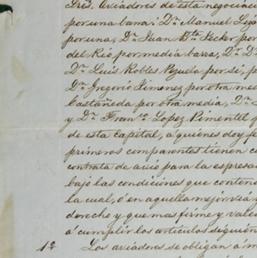 Sres. Aviadores de esta negociac
por una barra: Dn. Manuel
por una, Dn. Juan Bta. por
del Rio, por media barra, Dn. D
Dn. Luis Robles Pezuela por sí, p
Dn. Gregorio Jimenez por otra me
Castañeda por otra media, Dn.
y Dn. Franco. Lopez Pimentel q
de esta capital, a quienes doy fe
primeros comparentes tienen c
contrata de avio para la espresa
bajo las condiciones que conten
la cual, ó en aquella mejor via y
derecho y que mas firme y vale
á cumplir los articulos siguien
1a. Los aviadores se obligan á m